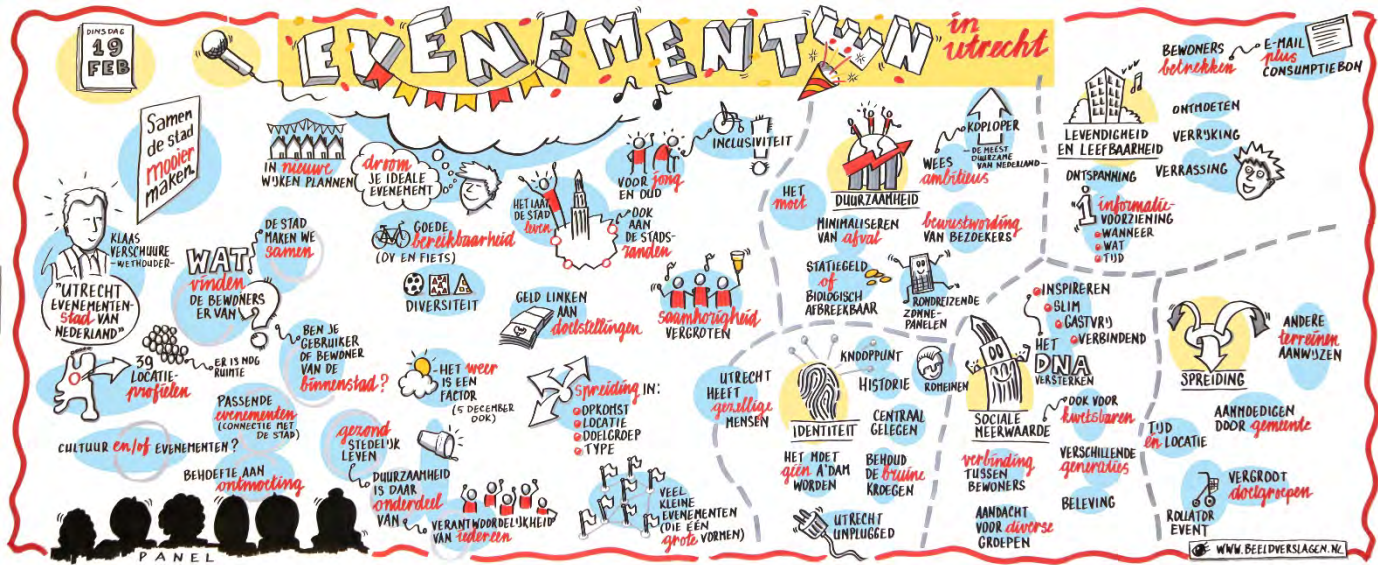 DINSDAG
19
FEB
EVENEMENTEN
in
utrecht
Samen
de stad
mooier
maken.
KLAAS
VERSCHUURE
-WETHOUDER-
"UTRECHT
EVENEMENTEN-
stad VAN
NEDERLAND"
39
LOCATIE-
profielen
ER IS NOG
RUIMTE
WAT
vinden
DE BEWONERS
ER VAN?
DE STAD
MAKEN WE
samen
BEN JE
GEBRUIKER
OF BEWONER
VAN DE
binnenstad?
PASSENDE
evenementen
(CONNECTIE MET
DE STAD)
CULTUUR en/of EVENEMENTEN?
BEHOEFTE AAN
ontmoeting
PANEL
IN nieuwe
WIJKEN PLANNEN
droom
JE IDEALE
EVENEMENT
GOEDE
bereikbaarheid
(OV EN FIETS)
DIVERSITEIT
HET WEER
IS EEN
FACTOR
(5 DECEMBER
OOK)
gezond
STEDELIJK
LEVEN
DUURZAAMHEID
IS DAAR
onderdeel
VAN
VERANTWOORDELIJKHEID
VAN iedereen
HET LAAT
DE STAD
leven
OOK
AAN
DE STADS-
randen
VOOR jong
EN OUD
INCLUSIVITEIT
GELD LINKEN
AAN
doelstellingen
saamhorigheid
VERGROTEN
Spreiding IN:
OPKOMST
LOCATIE
DOELGROEP
TYPE
VEEL
KLEINE
EVENEMENTEN
(DIE ÉÉN
grote VORMEN)
HET
moet
DUURZAAMHEID
KOPLOPER
-DE MEEST
DUURZAME
VAN NEDERLAND-
WEES
ambitieus
MINIMALISEREN
VAN afval
bewustwording
VAN BEZOEKERS
STATIEGELD
of
BIOLOGISCH
AFBREEKBAAR
RONDREIZENDE
ZONNE-
PANELEN
UTRECHT
HEEFT
gezellige
MENSEN
IDENTITEIT
KNOOPPUNT
HISTORIE
ROMEINEN
CENTRAAL
GELEGEN
HET MOET
géén A'DAM
WORDEN
BEHOUD
DE bruine
KROEGEN
UTRECHT
UNPLUGGED
LEVENDIGHEID
EN LEEFBAARHEID
BEWONERS
betrekken
E-MAIL
plus
CONSUMPTIEBON
ONTMOETEN
VERRIJKING
VERRASSING
ONTSPANNING
informatie-
VOORZIENING
WANNEER
WAT
TIJD
SOCIALE
MEERWAARDE
INSPIREREN
SLIM
GASTVRIJ
VERBINDEND
HET
DNA
VERSTERKEN
OOK VOOR
kwetsbaren
verbinding
TUSSEN
BEWONERS
VERSCHILLENDE
generaties
BELEVING
AANDACHT
VOOR diverse
GROEPEN
SPREIDING
ANDERE
terreinen
AANWIJZEN
AANMOEDIGEN
DOOR gemeente
TIJD
en LOCATIE
VERGROOT
doelgroepen
ROLLATOR
EVENT
WWW.BEELDVERSLAGEN.NL